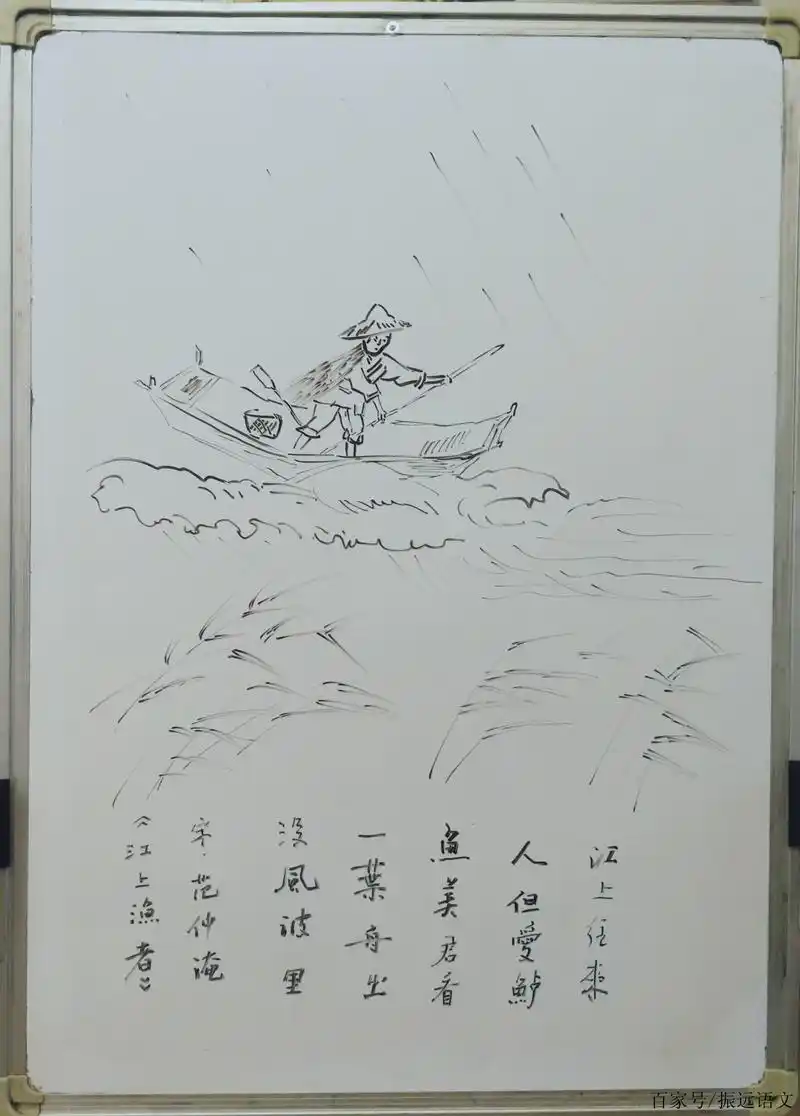 江上往來
人但愛鱸
魚美君看
一葉舟出
没風波里
宋·范仲淹
《江上漁者》
百家号/振远语文